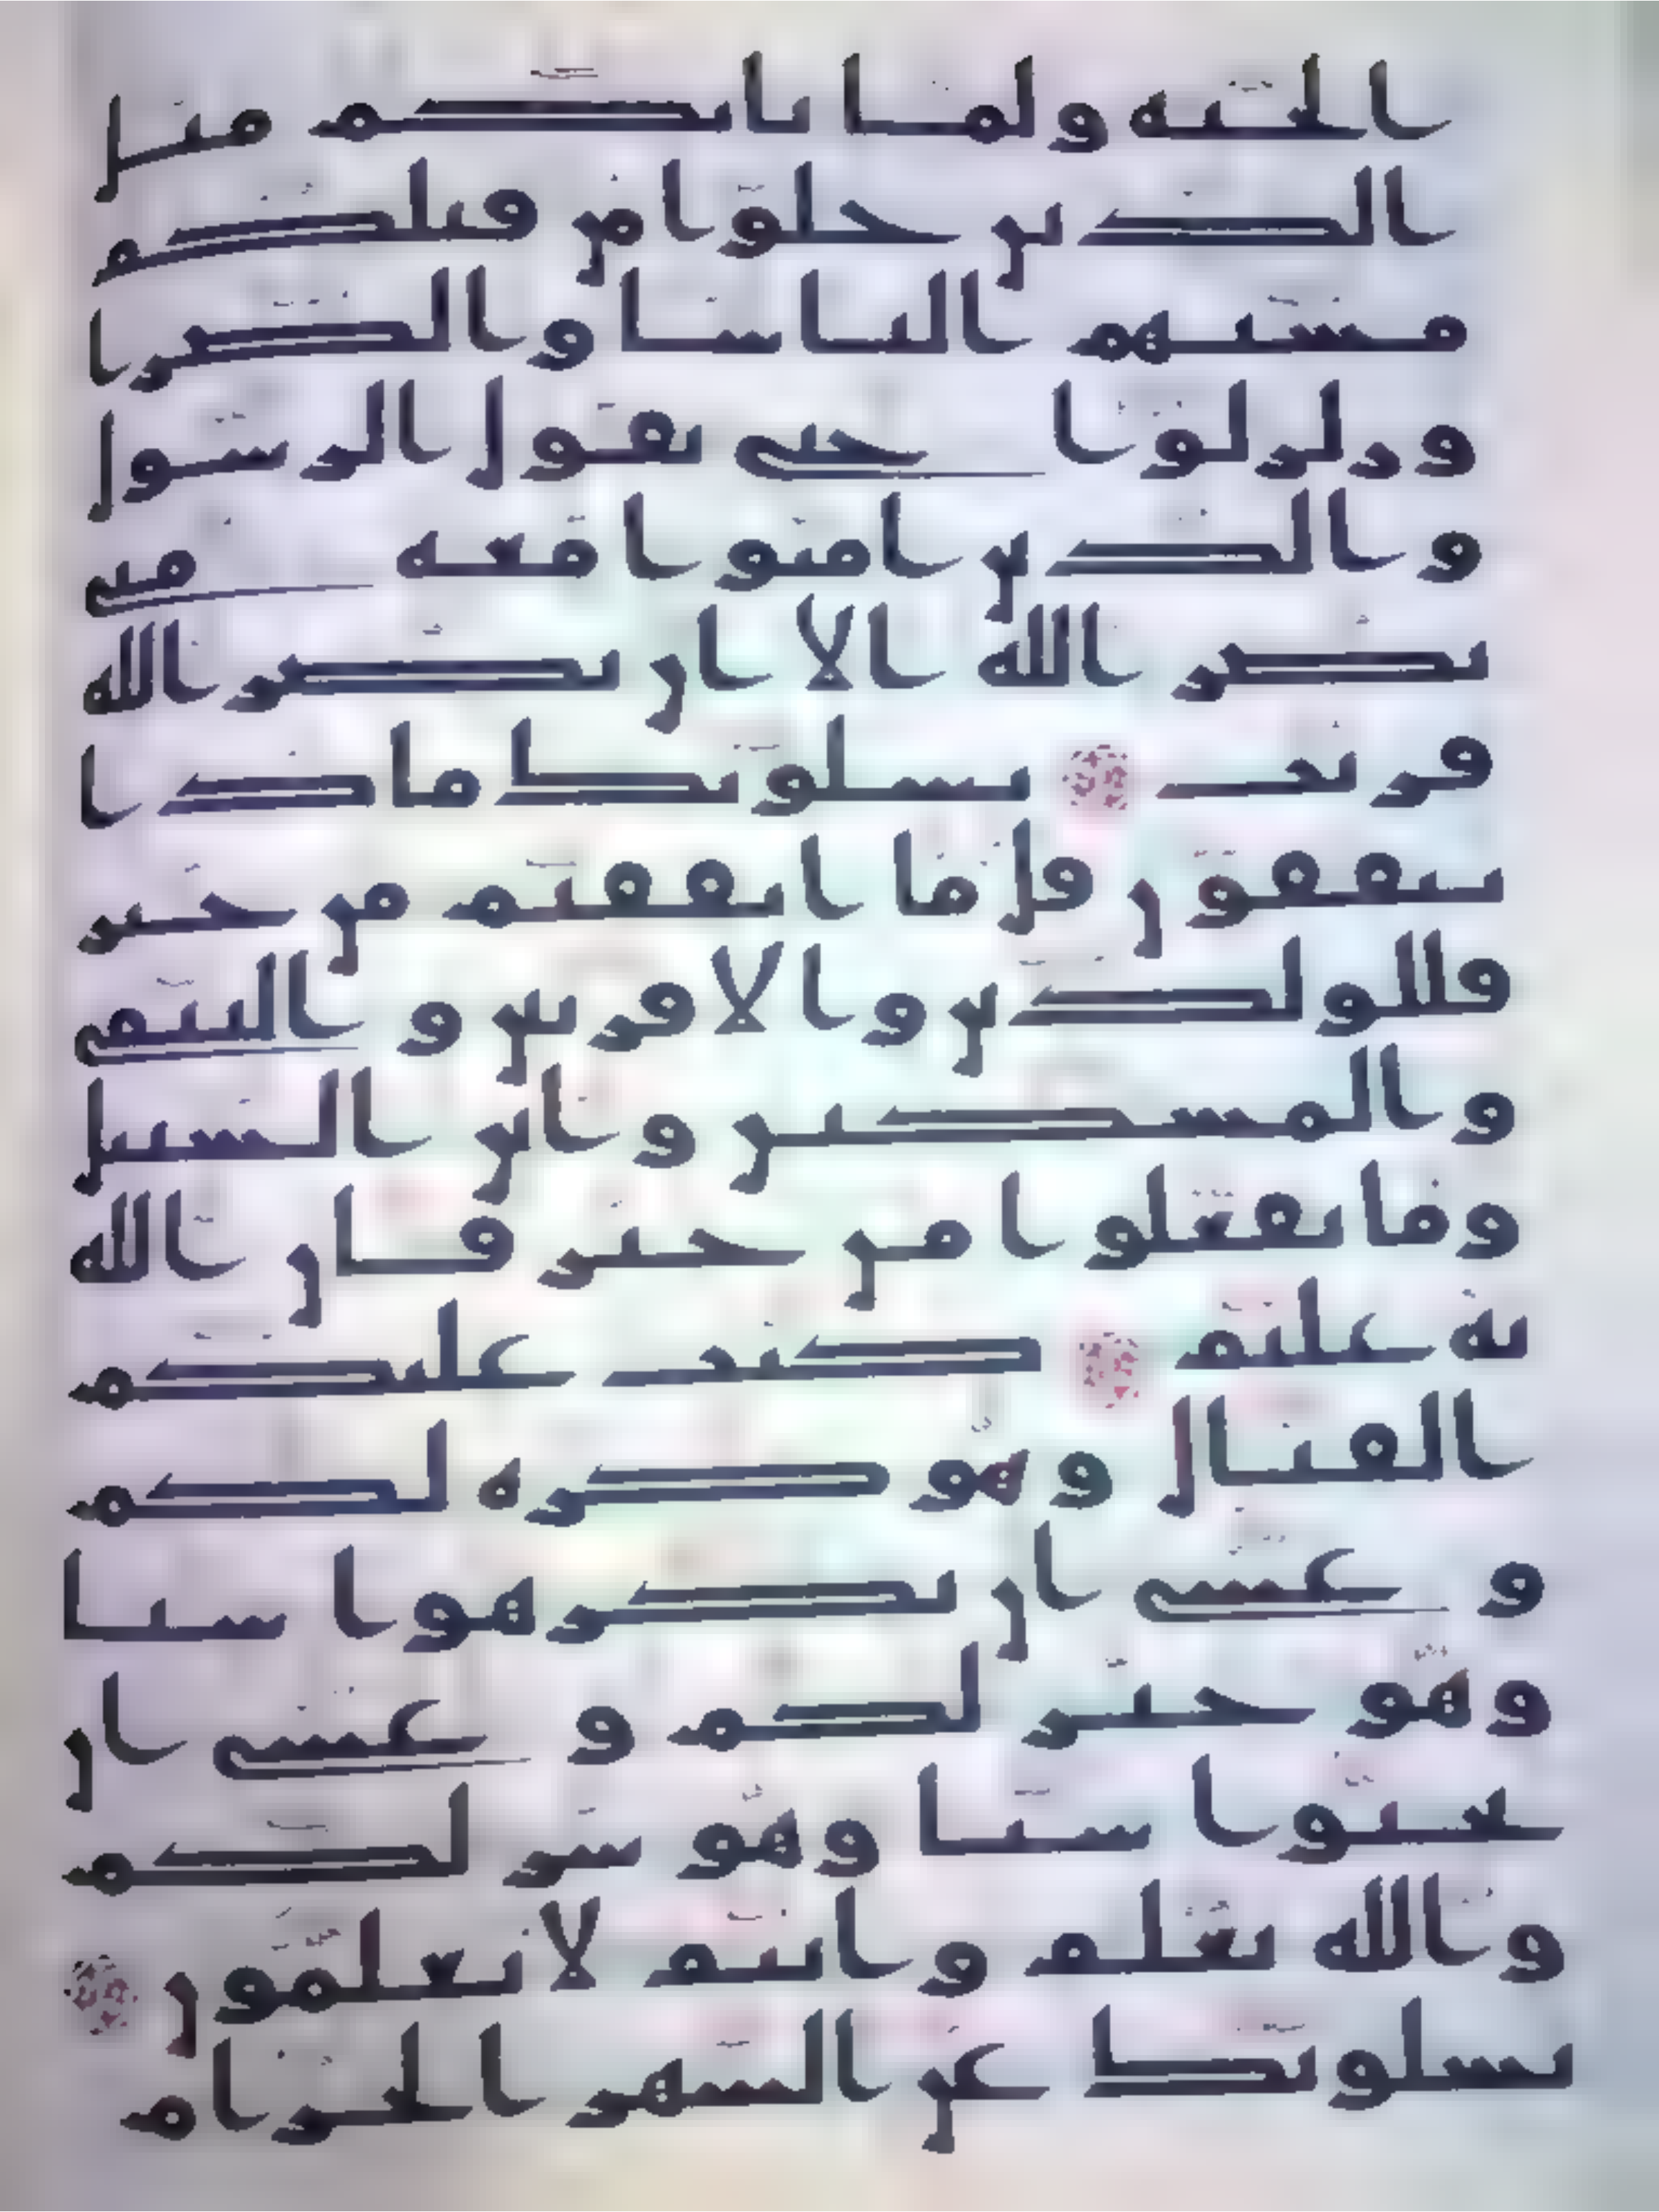 الجنة ولما ياتكم مثل
الذين خلوا من قبلكم
مستهم الباسا والضرا
وزلزلوا حتى يقول الرسول
والذين امنوا معه متى
نصر الله الا ان نصر الله
قريب يسلونك ماذا
ينفقون قل ما انفقتم من خير
فللولدين والاقربين واليتمى
والمسكين وابن السبيل
وما تفعلوا من خير فان الله
به عليم كتب عليكم
القتال وهو كره لكم
وعسى ان تكرهوا شيا
وهو خير لكم وعسى ان
تحبوا شيا وهو شر لكم
والله يعلم وانتم لا تعلمون
يسلونك عن الشهر الحرام